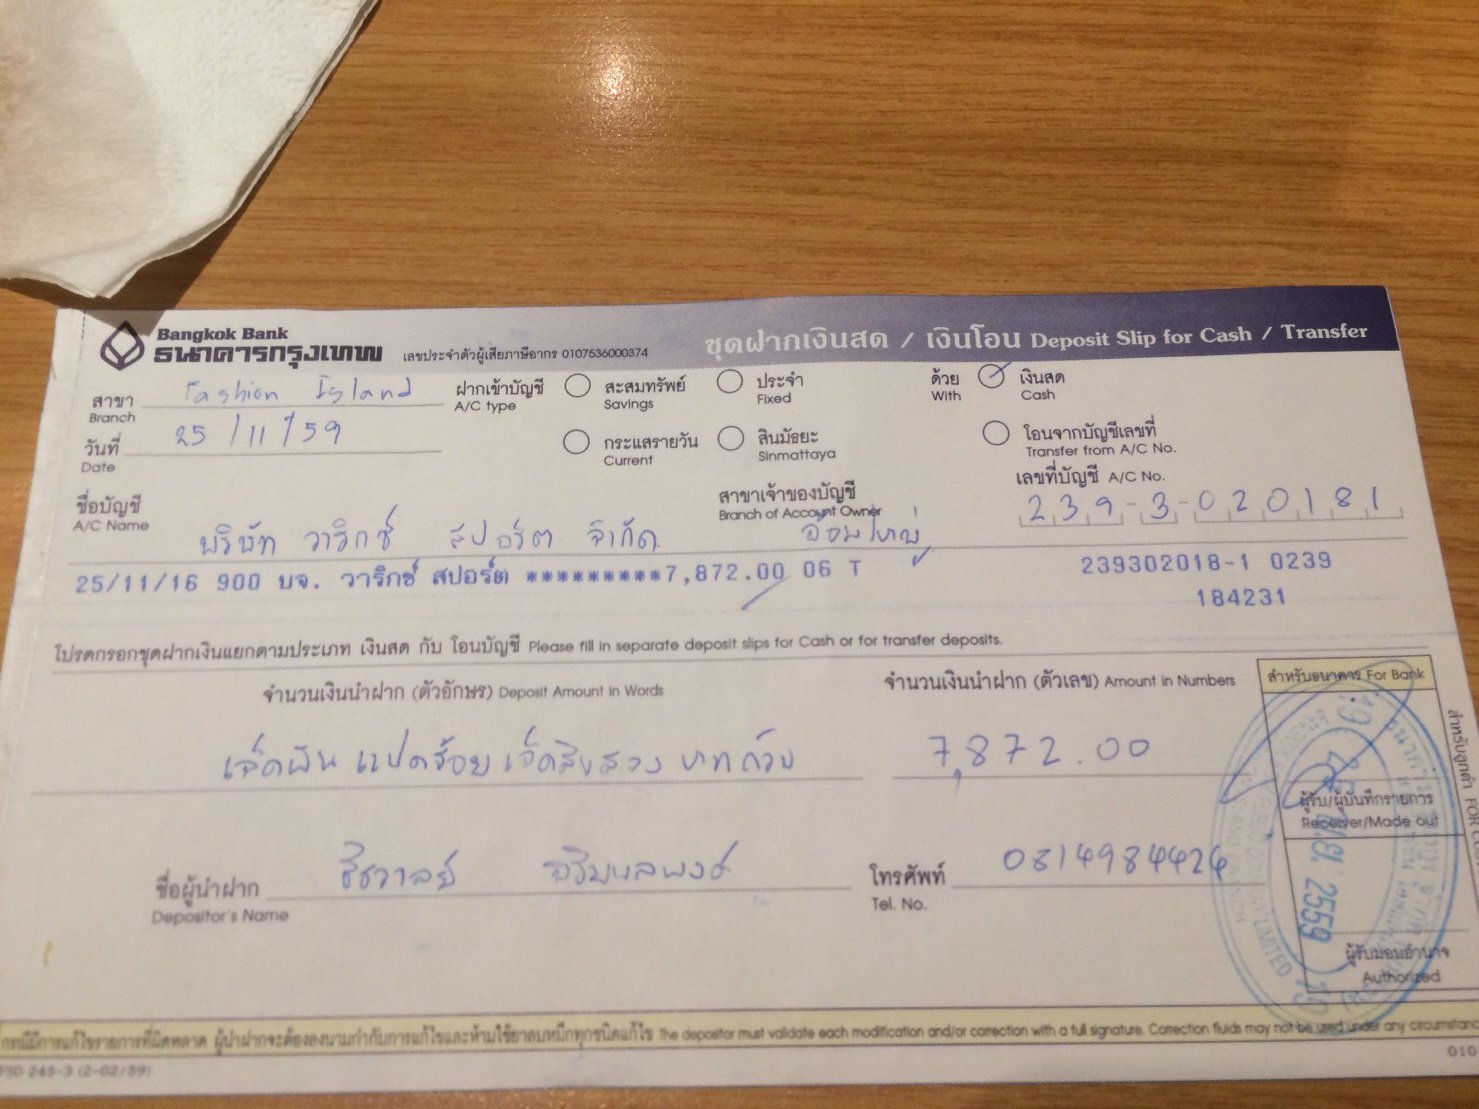 Bangkok Bank
ธนาคารกรุงเทพ เลขประจำตัวผู้เสียภาษีอากร 0107536000374
ชุดฝากเงินสด / เงินโอน Deposit Slip for Cash / Transfer
สาขา Fashion Island
Branch
วันที่ 25/11/59
Date
ฝากเข้าบัญชี
A/C type
สะสมทรัพย์
Savings
ประจำ
Fixed
กระแสรายวัน
Current
สินมัธยะ
Sinmattaya
ด้วย
With
เงินสด
Cash
โอนจากบัญชีเลขที่
Transfer from A/C No.
ชื่อบัญชี
A/C Name
บริษัท วาริกซ์ สปอร์ต จำกัด
สาขาเจ้าของบัญชี
Branch of Account Owner
อ้อมใหญ่
เลขที่บัญชี A/C No.
239-3-020181
25/11/16 900 บจ. วาริกซ์ สปอร์ต *********7,872.00 06 T 239302018-1 0239
184231
โปรดกรอกชุดฝากเงินแยกตามประเภท เงินสด กับ โอนบัญชี Please fill in separate deposit slips for Cash or for transfer deposits.
จำนวนเงินนำฝาก (ตัวอักษร) Deposit Amount in Words
จำนวนเงินนำฝาก (ตัวเลข) Amount in Numbers
สำหรับธนาคาร For Bank
เจ็ดพันแปดร้อยเจ็ดสิบสองบาทถ้วน
7,872.00
ผู้รับ/ผู้บันทึกรายการ
Receiver/Made out
ชื่อผู้นำฝาก
Depositor's Name
โทรศัพท์ 0814984424
Tel. No.
2559
ผู้รับมอบอำนาจ
Authorized
กรณีมีการแก้ไขรายการที่ผิดพลาด ผู้นำฝากจะต้องลงนามกำกับการแก้ไขและห้ามใช้ยาลบหมึกทุกชนิดแก้ไข The depositor must validate each modification and/or correction with a full signature. Correction fluids may not be used under any
FSD 245-3 (2-02/59)
010